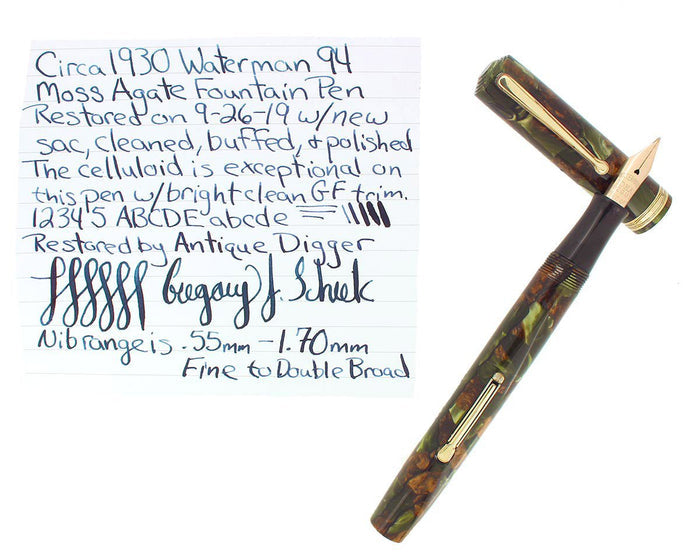 Circa 1930 Waterman 94
Moss Agate Fountain Pen
Restored on 9-26-19 w/new
sac, cleaned, buffed, + polished
The celluloid is exceptional on
this pen w/bright clean GF trim.
12345 ABCDE abcde
Restored by Antique Digger
Gregory J.
Nib range is .55mm - 1.70mm
Fine to Double Broad